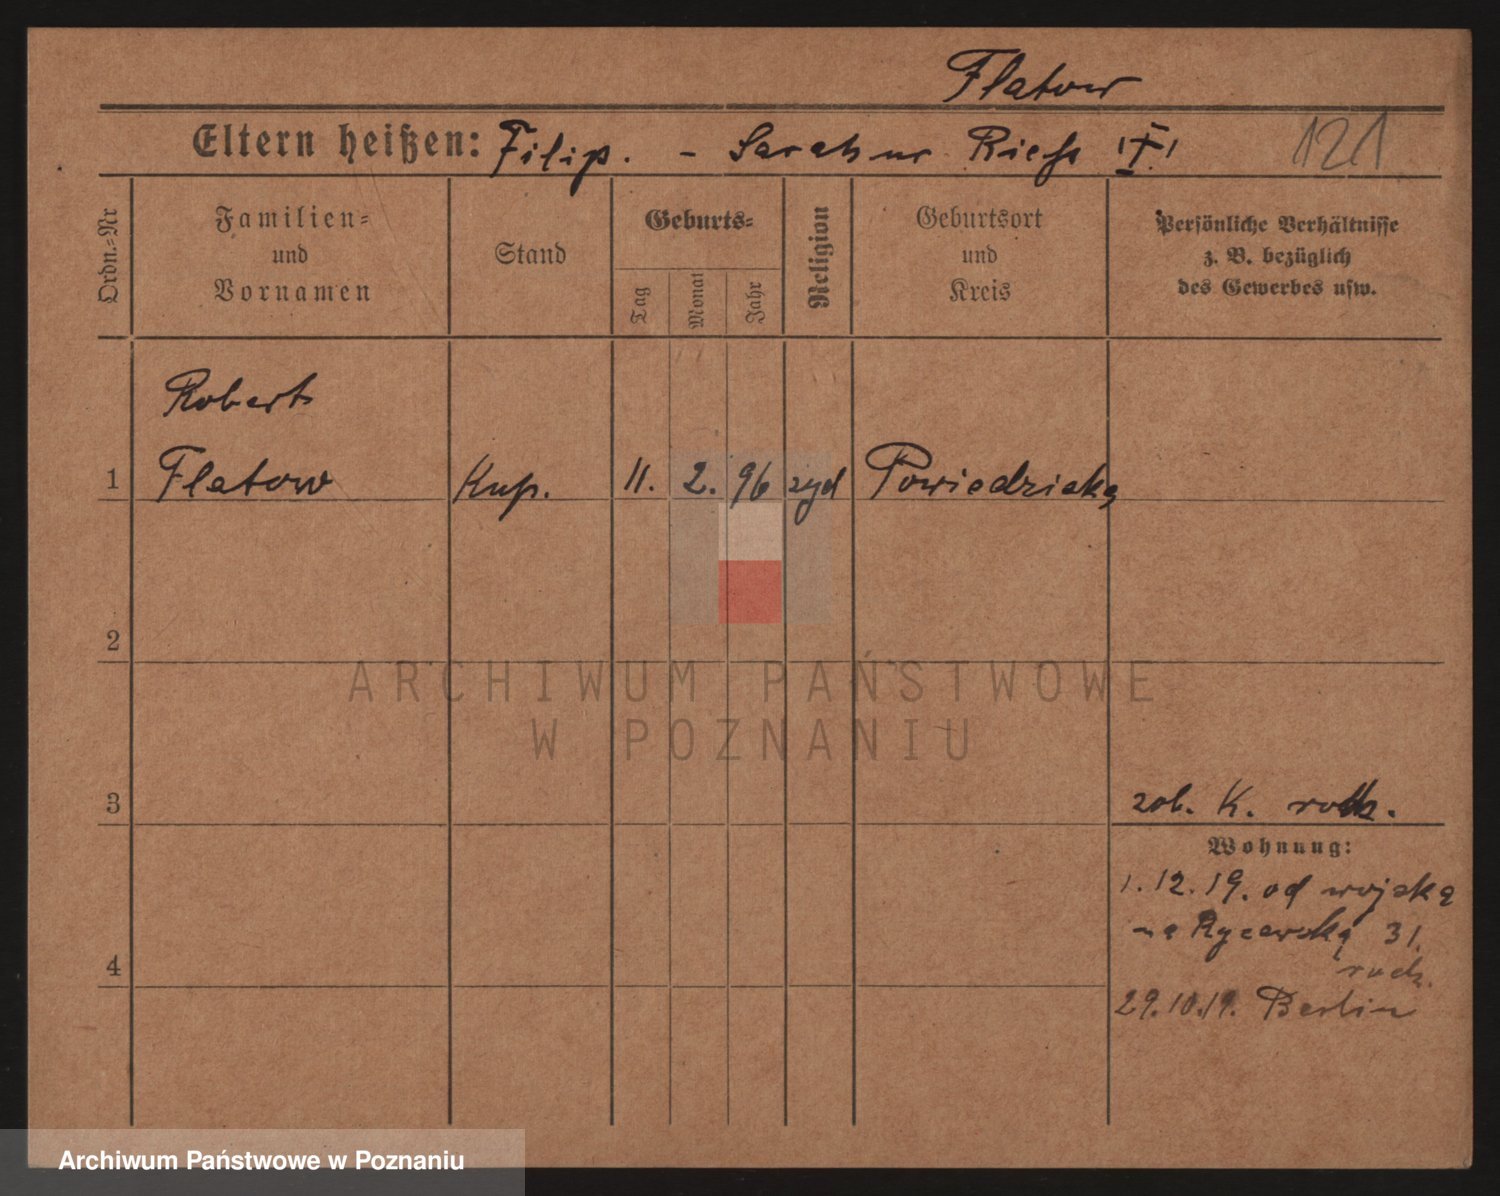 Flatow
Eltern heißen: Filip. - Sarah ur. Riess 121
Ordn.-Nr
Familien-
und
Vornamen
Stand
Geburts-
Tag
Monat
Jahr
Religion
Geburtsort
und
Kreis
Persönliche Verhältnisse
z. B. bezüglich
des Gewerbes usw.
Robert
1 Flatow Kup. 11. 2. 96 żyd Powiedziska
2
ARCHIWUM PAŃSTWOWE
W POZNANIU
3 zob. K. rodz.
Wohnung:
1.12.19. od wojska
na Rycerską 31.
rodz.
4
29.10.19. Berlin
Archiwum Państwowe w Poznaniu